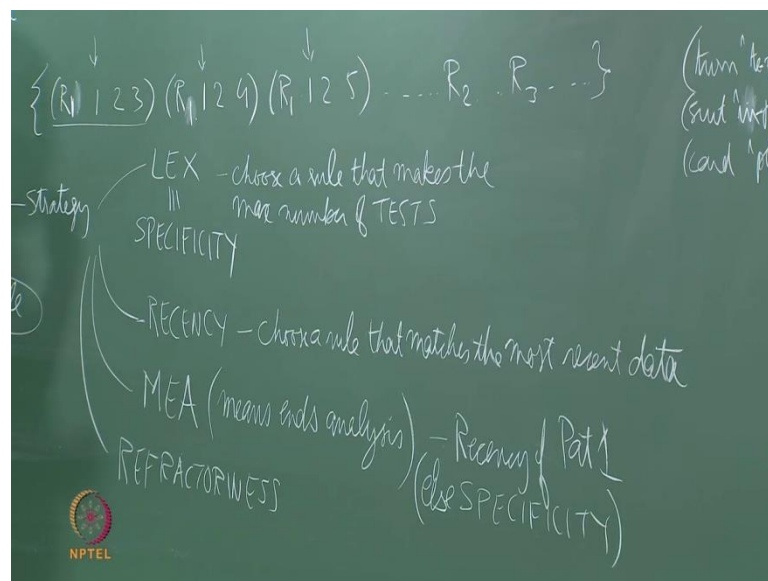 {(R1 1 2 3) (R1 1 2 4) (R1 1 2 5) ..... R2 .. R3 ...}
(turn
(suit
(card
- Strategy
LEX - choose a rule that makes the
max number of TESTS
|||
SPECIFICITY
RECENCY - choose a rule that matches the most recent data
MEA (means ends analysis) - Recency of Pat 1
(else SPECIFICITY)
REFRACTORINESS
NPTEL